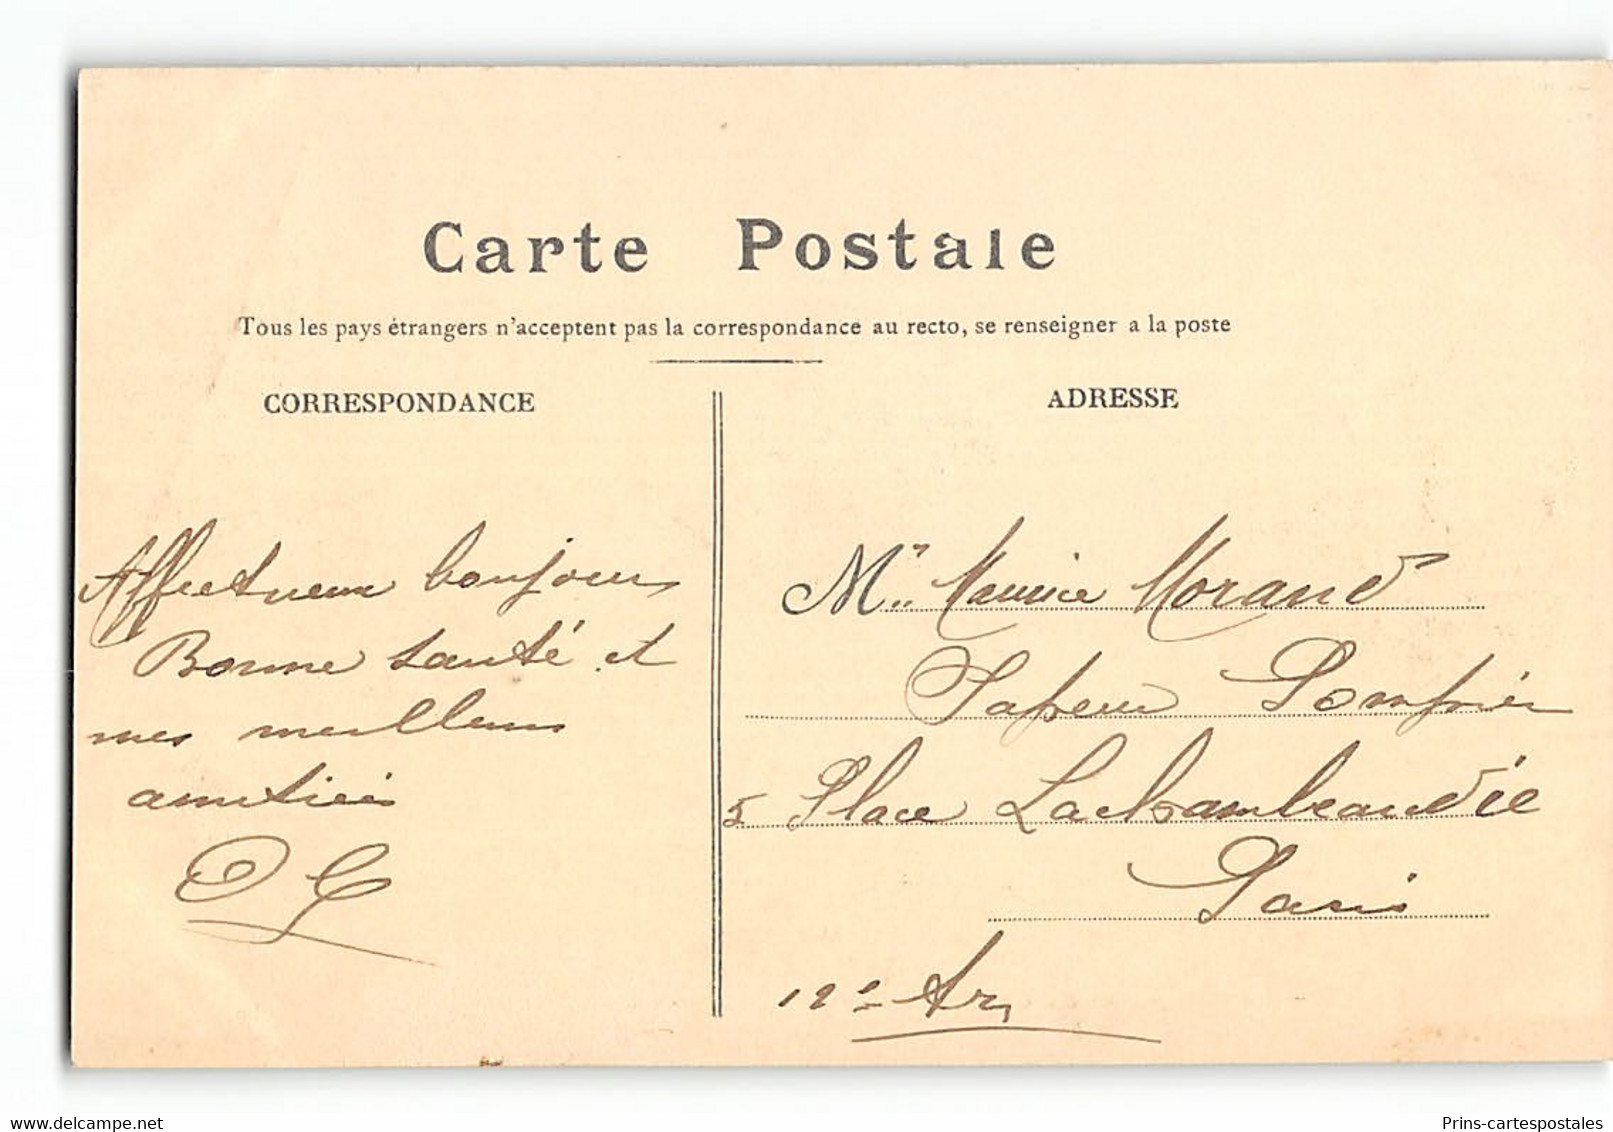 Carte Postale
Tous les pays étrangers n'acceptent pas la correspondance au recto, se renseigner a la poste
CORRESPONDANCE
Affectueux bonjours
Bonne santé et
mes meilleurs
amitiés
ADRESSE
Mr Maurice Morand
Sapeur Pompier
5 Place Lachambeaudie
Paris
12e Ar
delcampe.net
Prins-cartespostales